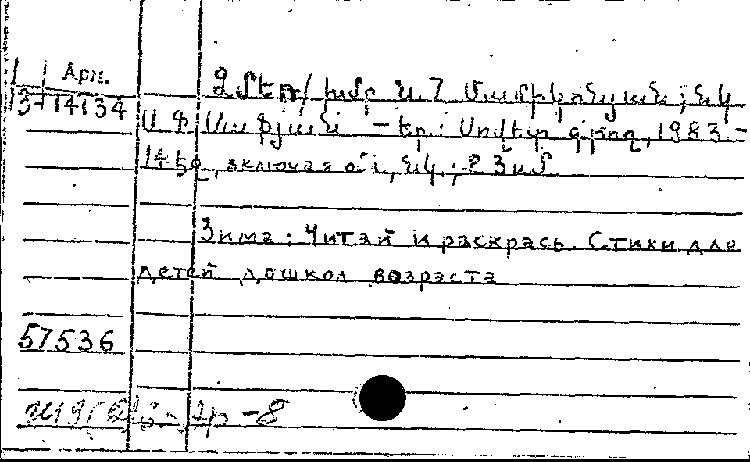 Арп.
3-14134
Ձմեռ/ խմբ Ա. Լ Մամիկոնյան; նկ
Ա. Փ. Սաֆյանի – Եր.: Սովետ. գրող, 1983.–
14 էջ, включая обл., նկ.; 23 սմ
Зима: Читай и раскрась. Стихи для
детей дошкол возраста
57536